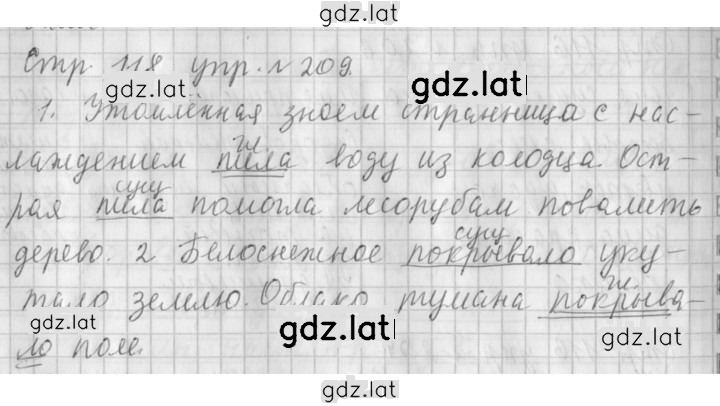 gdz.lat
Стр. 118 упр. № 209.
gdz.lat
1. Утомлённая зноем странница с нас-
гл.
лаждением пила воду из колодца. Ост-
сущ.
рая пила помогла лесорубам повалить
сущ.
дерево. 2. Белоснежное покрывало уку-
гл.
тало землю. Облако тумана покрыва-
gdz.lat gdz.lat gdz.lat
ло поле.
gdz.lat